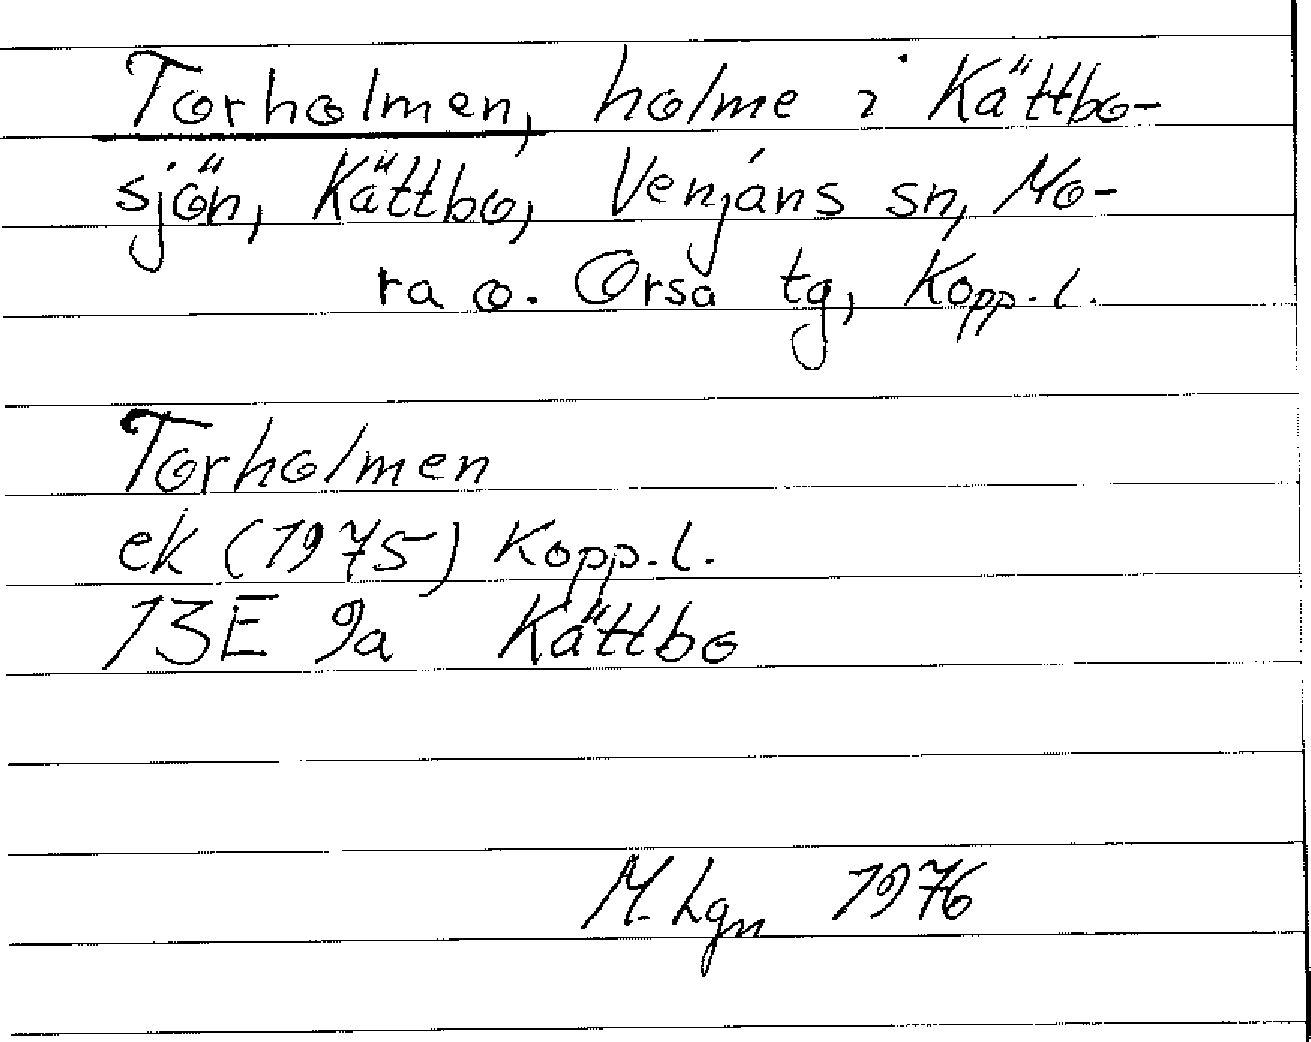 Torholmen, holme i Kättbo-
sjön, Kättbo, Venjans sn, Mo-
ra o. Orsa tg, Kopp.l.
Torholmen
ek (1975) Kopp.l.
13E 9a Kättbo
M. Lgn 1976